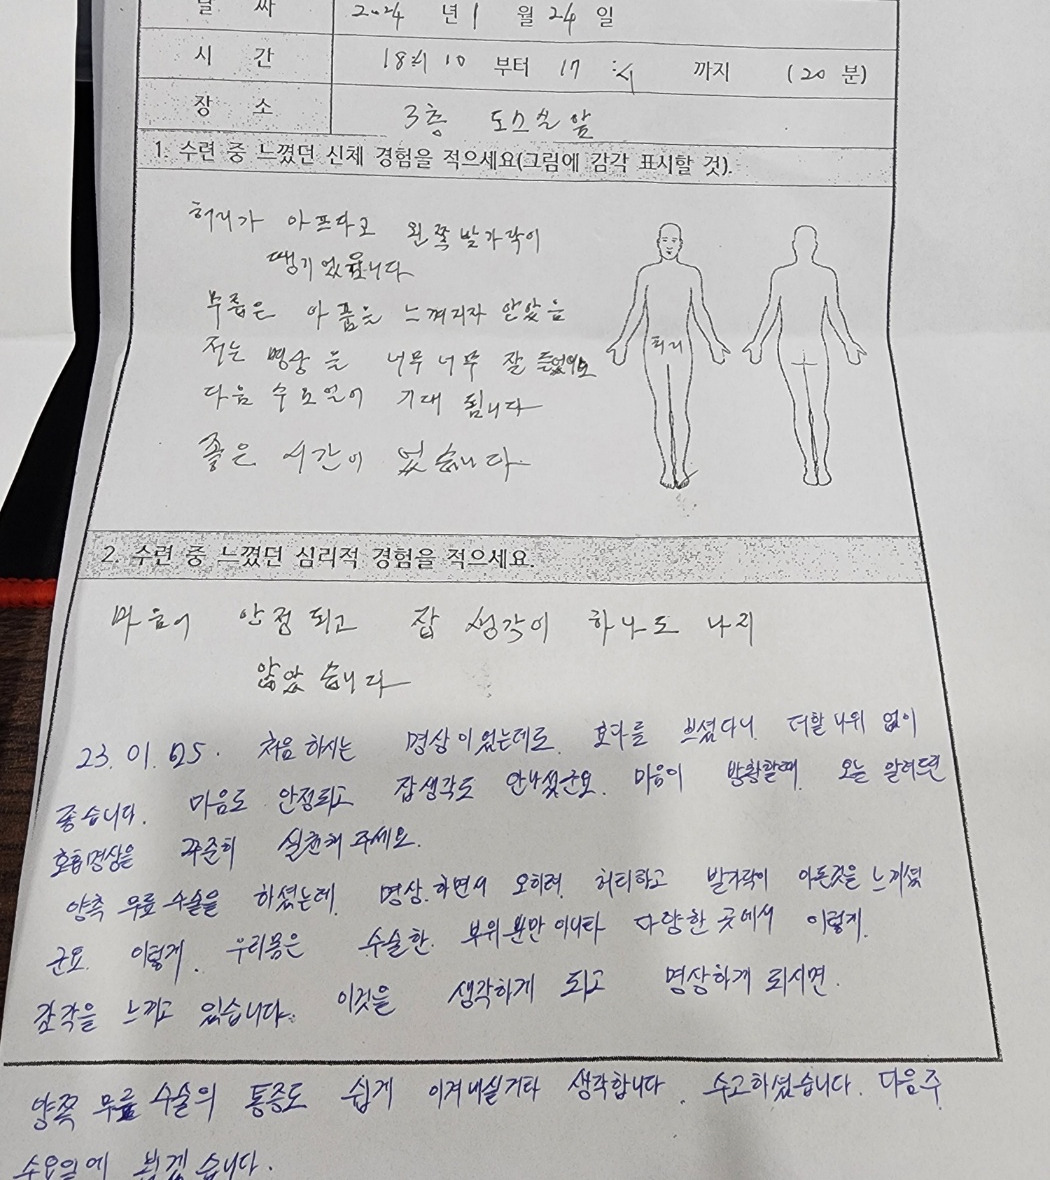 날 짜 2024 년 1 월 24 일
시 간 18시 10 부터 17 :시 까지 (20 분)
장 소 3층 도스실 앞
1. 수련 중 느꼈던 신체 경험을 적으세요(그림에 감각 표시할 것).
허리가 아프다고 왼쪽 발가락이
땡기었읍니다
무릎은 아픔을 느껴지자 않았음
저는 명상을 너무너무 잘 들었어요
다음 수요일이 기대 됩니다
좋은 시간이 었습니다
허리
2. 수련 중 느꼈던 심리적 경험을 적으세요.
마음이 안정되고 잡 생각이 하나도 나지
않았습니다
23. 01. 25. 처음 하시는 명상이었는데도 효과를 쓰셨다니 더할 나위 없이
좋습니다. 마음도 안정되고 잡생각도 안나셨군요. 마음이 방황할때 오늘 알려드린
호흡명상을 꾸준히 실천해 주세요.
양측 무릎 수술을 하셨는데, 명상.하면서 오히려 허리하고 발가락이 아픈것을 느끼셨
군요. 이렇게. 우리몸은 수술한. 부위뿐만 아니라 다양한 곳에서 이렇게.
감각을 느끼고 있습니다. 이것을 생각하게 되고 명상하게 되시면.
양쪽 무릎 수술의 통증도 쉽게 이겨내실거라 생각합니다. 수고하셨습니다. 다음주
수요일에 뵙겠습니다.